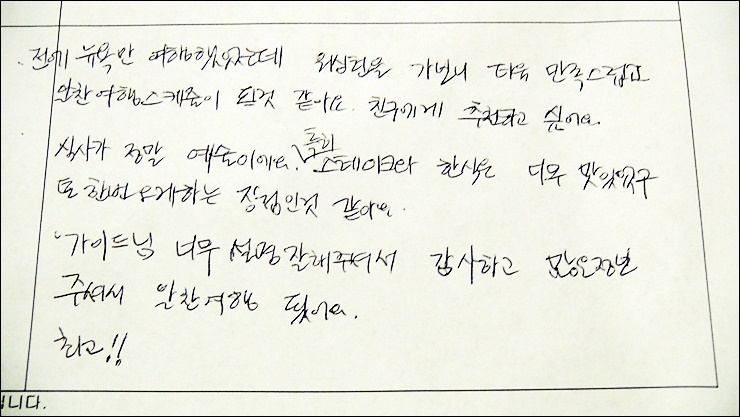 전에 뉴욕만 여행했었는데 워싱턴을 가보니 더욱 만족스럽고
알찬여행스케쥴이 된것 같아요. 친구에게 추천하고 싶어요.
식사가 정말 예술이에요. 특히 스테이크와 한식은 너무 맛있었구
또한번 오게하는 장점인것 같아요.
가이드님 너무 설명잘해주셔서 감사하고 많은정보
주셔서 알찬여행 됬어요.
최고!!
니다.